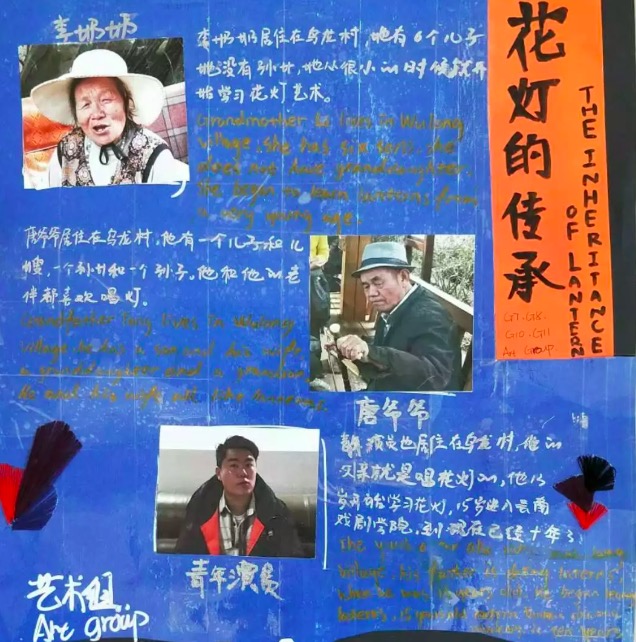 李奶奶
李奶奶居住在乌龙村，她有6个儿子
她没有孙女，她从很小的时候就开
始学习花灯艺术。
Grandmother Li lives in Wulong
village, she has six sons. she
does not have granddaughter.
She began to learn lanterns from
a very young age.
花灯的传承
THE INHERITANCE
OF LANTERN
G7. G8.
G10. G11
Art Group
唐爷爷居住在乌龙村，他有一个儿子和儿
媳，一个孙女和一个孙子。他和他的老
伴都喜欢唱灯。
Grandfather Tang lives in Wulong
village. he has a son and his wife,
a granddaughter and a grandson,
He and his wife all like lanterns.
唐爷爷
演员也居住在乌龙村，他的
父亲就是唱花灯的，他13
岁开始学习花灯，15岁进入云南
戏剧学院，到现在已经十年了
village, his father is
青年演员
艺术组
Art group